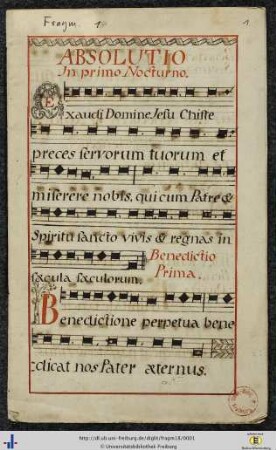 Fragm. 1
1
ABSOLUTIO
In primo Nocturno.
Exaudi Domine Jesu Chiste
preces servorum tuorum et
miserere nobis, qui cum Patre &
Spiritu sancto vivis & regnas in
Benedictio
sæcula sæculorum.
Prima.
Benedictione perpetua bene
dicat nos Pater æternus.
http://dl.ub.uni-freiburg.de/diglit/fragm1870001
© Universitätsbibliothek Freiburg